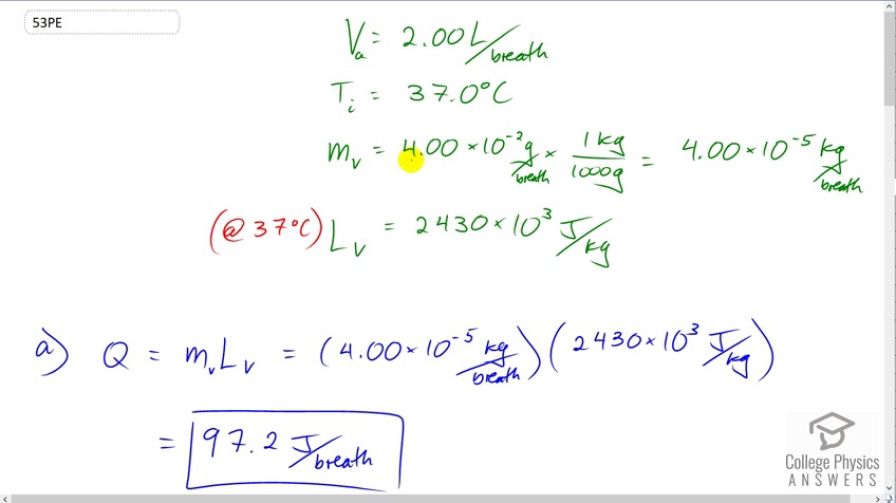 53PE
Vₐ = 2.00 L/breath
Tᵢ = 37.0°C
mᵥ = 4.00 × 10⁻² g/breath × 1 kg/1000g = 4.00 × 10⁻⁵ kg/breath
(@ 37°C) Lᵥ = 2430 × 10³ J/kg
a) Q = mᵥLᵥ = (4.00 × 10⁻⁵ kg/breath)(2430 × 10³ J/kg)
= 97.2 J/breath
College Physics
ANSWERS